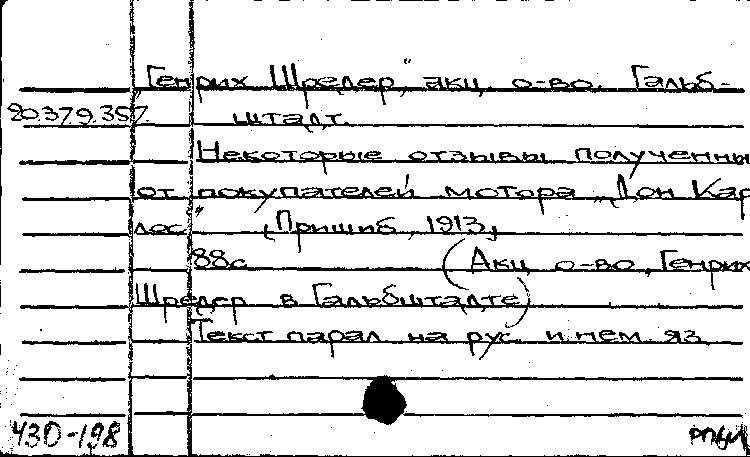 "Генрих Шредер", акц. о-во. Гальб-
20.379.357. штадт.
Некоторые отзывы полученны
от покупателей мотора „Дон Кар
лос" (Пришиб, 1913,
88с. (Акц. о-во „Генрих
Шредер в Гальбштадте)
Текст парал. на рус. и нем. яз.
430-198